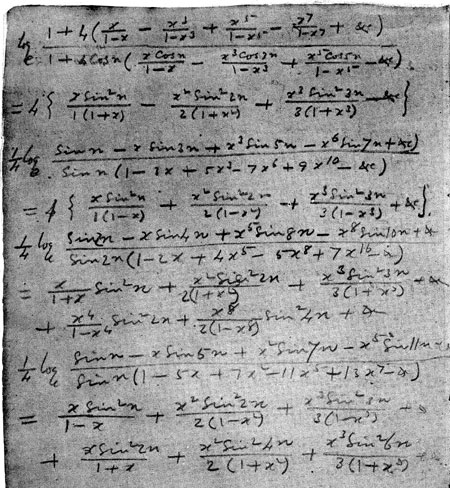 log_e (1 + 4(x/(1-x) - x³/(1-x³) + x⁵/(1-x⁵) - x⁷/(1-x⁷) + &c)) / (1 + 4Cosn(xCosn/(1-x) - x³Cos3n/(1-x³) + x⁵Cos5n/(1-x⁵) - &c))
= 4 { xSin²n/1(1+x) - x²Sin²2n/2(1+x²) + x³Sin²3n/3(1+x³) - &c }
¼ log_e (Sin n - xSin3n + x³Sin5n - x⁶Sin7n + &c) / (Sin n (1 - 3x + 5x³ - 7x⁶ + 9x¹⁰ - &c))
= { xSin²n/1(1-x) + x²Sin²2n/2(1-x²) + x³Sin²3n/3(1-x³) + &c }.
¼ log_e (Sin2n - xSin4n + x⁵Sin8n - x⁸Sin10n + &) / (Sin2n (1 - 2x + 4x⁵ - 5x⁸ + 7x¹⁶ - &))
= x/(1+x) Sin²n + x²Sin²2n/2(1+x²) + x³Sin²3n/3(1+x³) + &
+ x⁴/(1-x⁴) Sin²2n + x⁸/2(1-x⁸) Sin²4n + &
¼ log_e (Sin n - xSin5n + x²Sin7n - x⁵Sin11n + &) / (Sin n (1 - 5x + 7x² - 11x⁵ + 13x⁷ - &))
= xSin²n/(1-x) + x²Sin²2n/2(1-x²) + x³Sin²3n/3(1-x³) + &
+ xSin²2n/(1+x) + x²Sin²4n/2(1+x²) + x³Sin²6n/3(1+x³) +